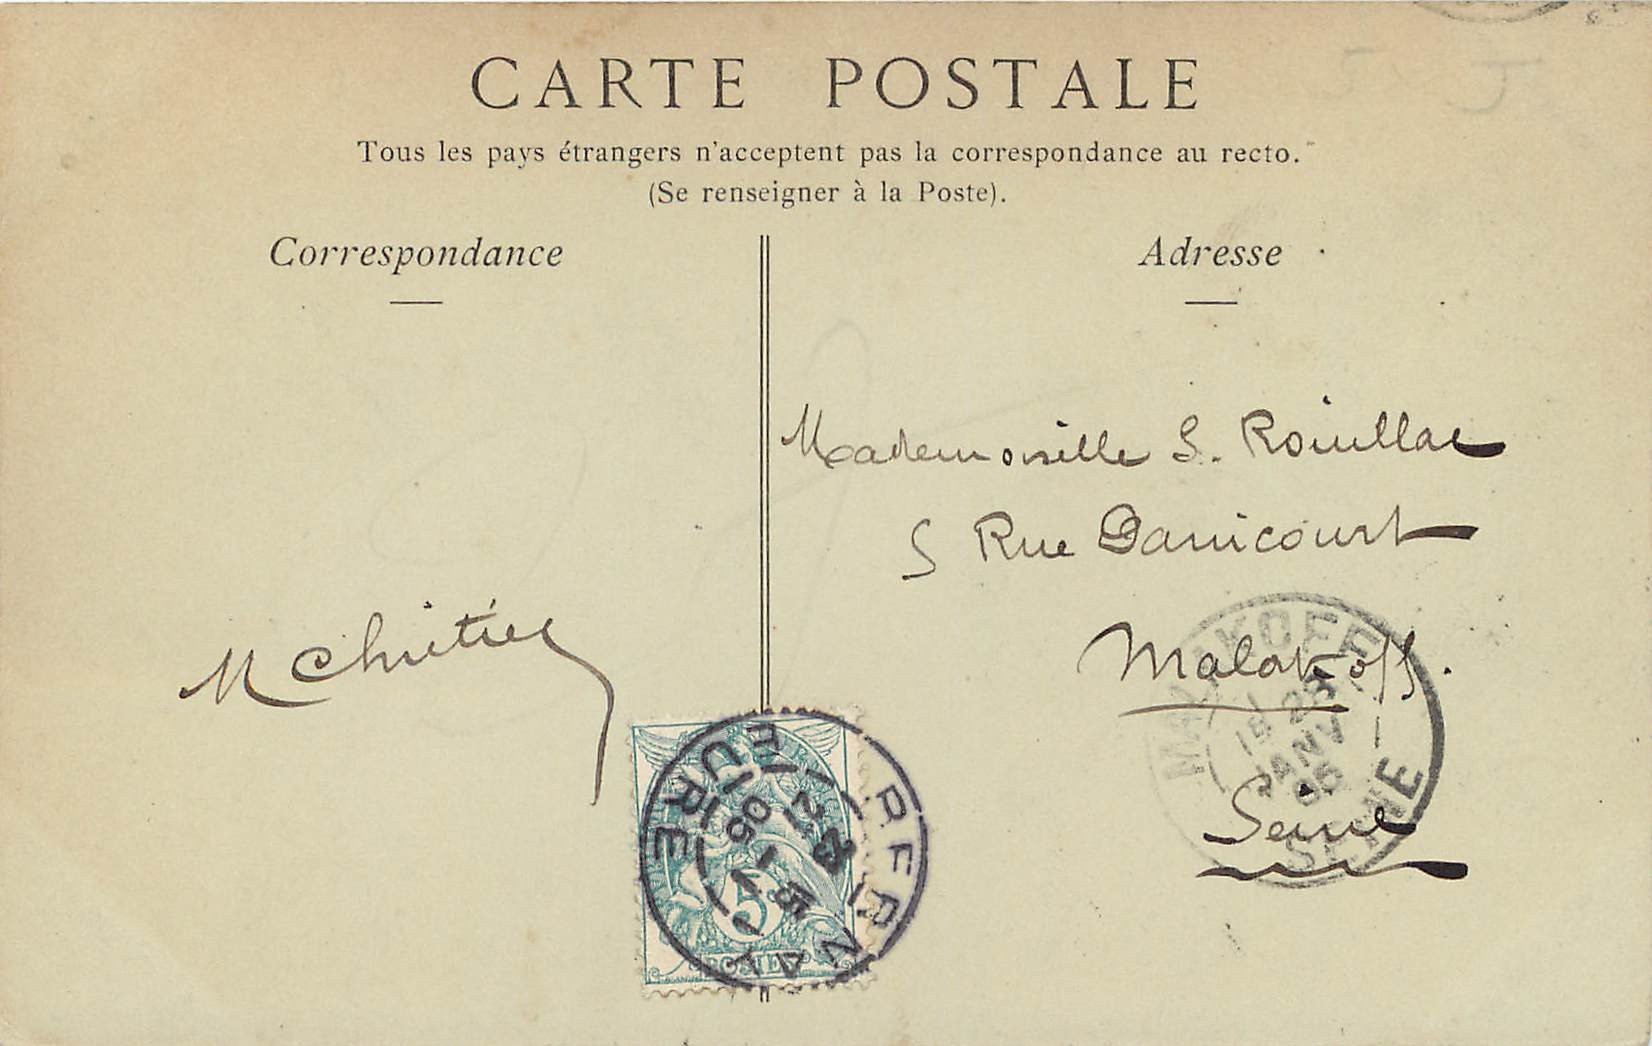 CARTE POSTALE
Tous les pays étrangers n'acceptent pas la correspondance au recto.
(Se renseigner à la Poste).
Correspondance
Adresse
Mademoiselle S. Rouillac
5 Rue Danicourt
Malakoff.
Seine
M Chrétien
MALAKOFF
28
JANV
05
SEINE
EURE
05
5